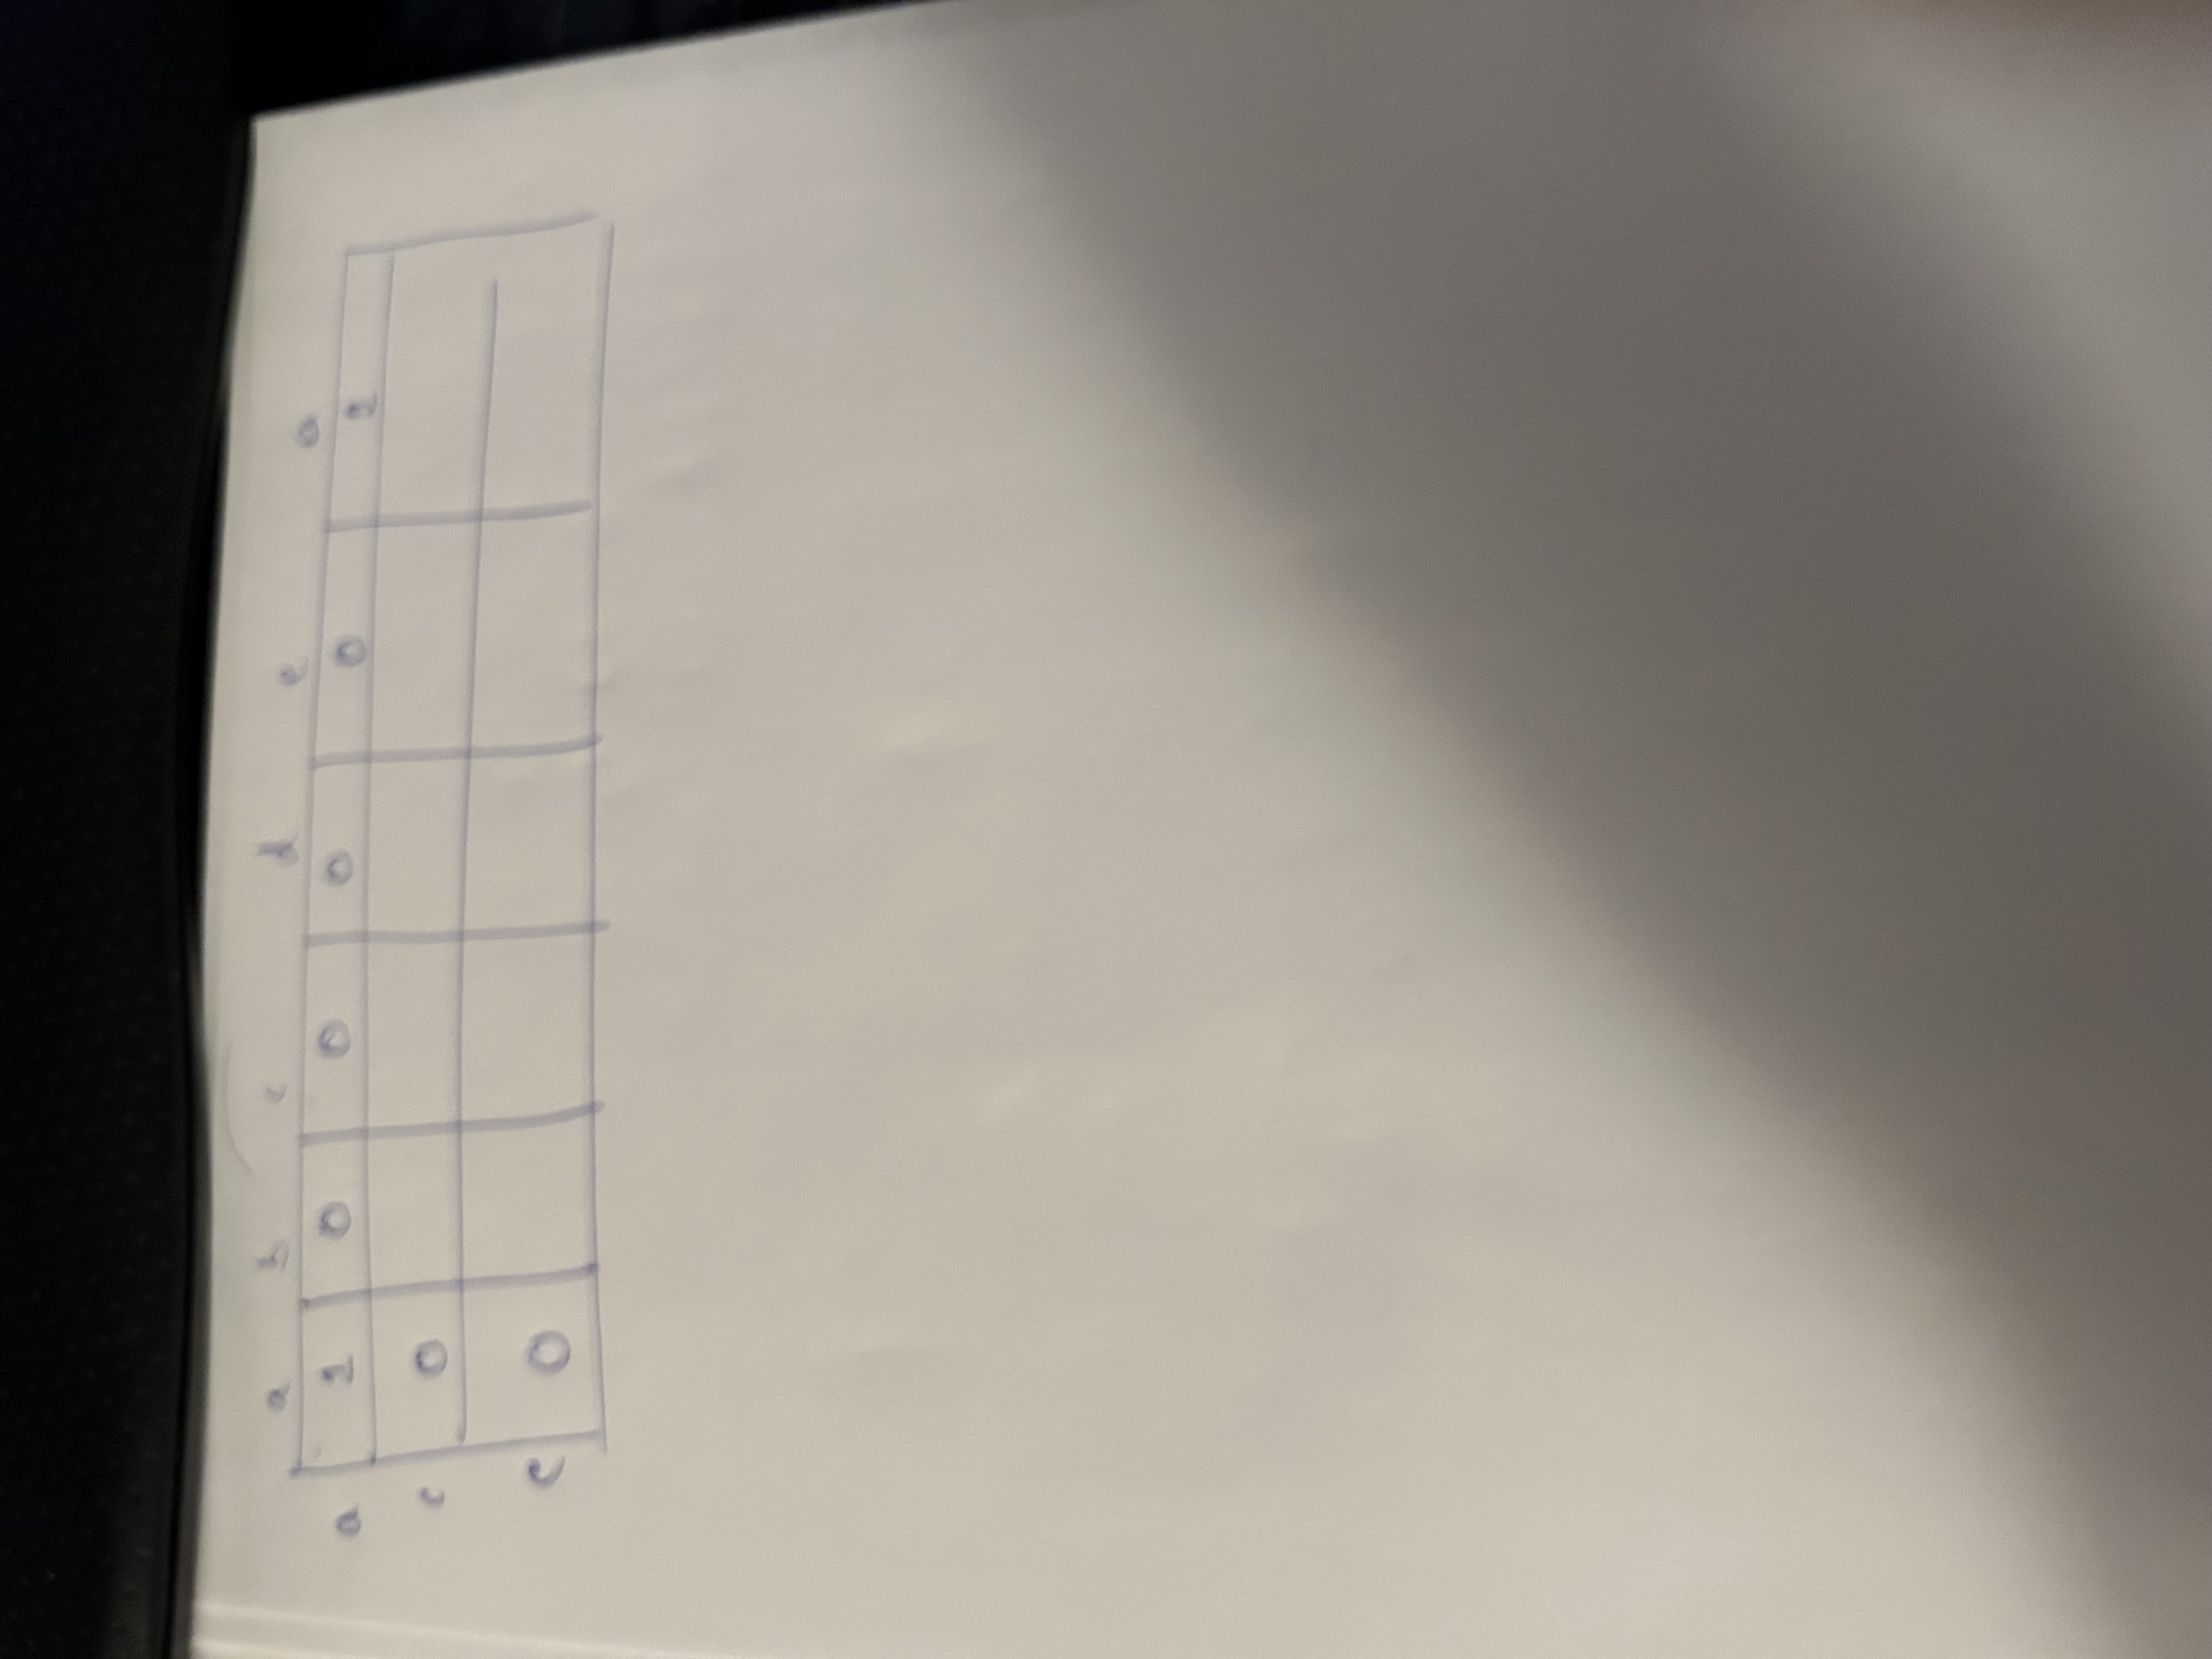 a b c d e a
a 1 0 0 0 0 1
c 0
e 0